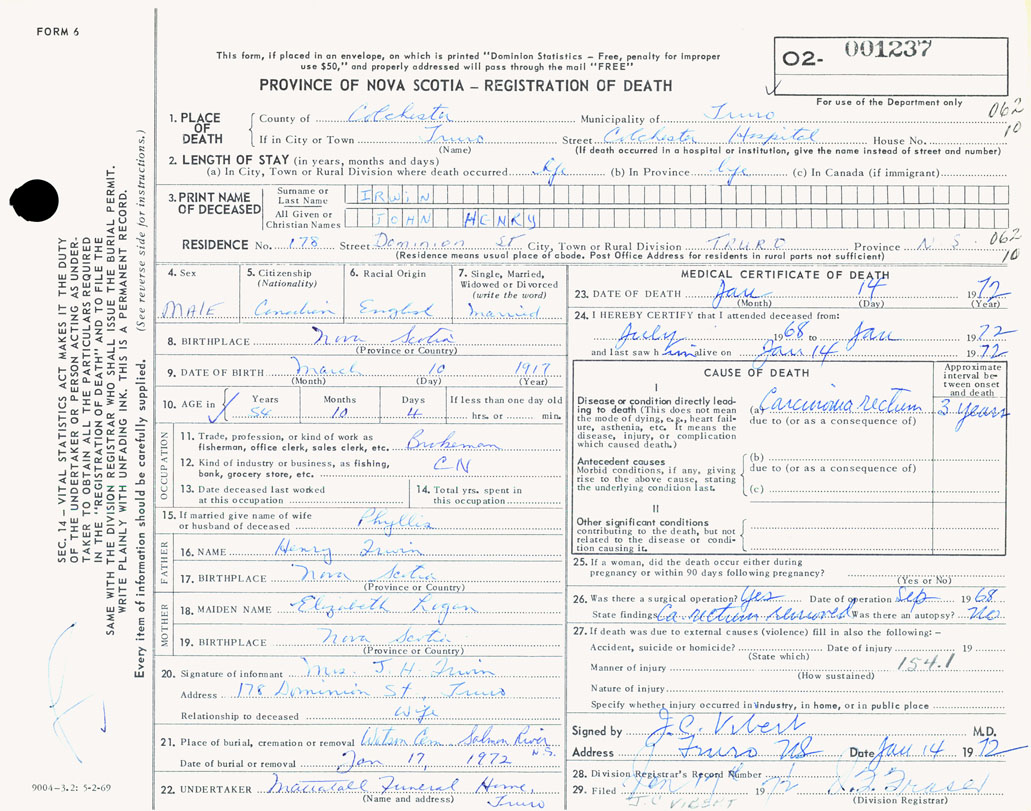 FORM 6
This form, if placed in an envelope, on which is printed "Dominion Statistics – Free, penalty for improper
use $50," and properly addressed will pass through the mail "FREE"
02- 001237
PROVINCE OF NOVA SCOTIA – REGISTRATION OF DEATH
For use of the Department only
062
10
1. PLACE OF DEATH County of Colchester Municipality of Truro
If in City or Town Truro Street Colchester Hospital House No.
(Name) (If death occurred in a hospital or institution, give the name instead of street and number)
2. LENGTH OF STAY (in years, months and days)
(a) In City, Town or Rural Division where death occurred life (b) In Province life (c) In Canada (if immigrant)
3. PRINT NAME OF DECEASED Surname or Last Name IRWIN
All Given or Christian Names JOHN HENRY
RESIDENCE No. 178 Street Dominion St City, Town or Rural Division TRURO Province N.S. 062
10
(Residence means usual place of abode. Post Office Address for residents in rural parts not sufficient)
4. Sex MALE
5. Citizenship (Nationality) Canadian
6. Racial Origin English
7. Single, Married, Widowed or Divorced (write the word) Married
8. BIRTHPLACE Nova Scotia
(Province or Country)
9. DATE OF BIRTH March 10 1917
(Month) (Day) (Year)
10. AGE in Years 54 Months 10 Days 4 If less than one day old
hrs. or min.
OCCUPATION
11. Trade, profession, or kind of work as
fisherman, office clerk, sales clerk, etc. Brakeman
12. Kind of industry or business, as fishing,
bank, grocery store, etc. CN
13. Date deceased last worked
at this occupation
14. Total yrs. spent in
this occupation
15. If married give name of wife
or husband of deceased Phyllis
FATHER
16. NAME Henry Irwin
17. BIRTHPLACE Nova Scotia
(Province or Country)
MOTHER
18. MAIDEN NAME Elizabeth Logan
19. BIRTHPLACE Nova Scotia
(Province or Country)
20. Signature of informant Mrs. J. H. Irwin
Address 178 Dominion St, Truro
Relationship to deceased Wife
21. Place of burial, cremation or removal Watson Cem. Salmon River N.S.
Date of burial or removal Jan 17, 1972
22. UNDERTAKER Mattatall Funeral Home, Truro
(Name and address)
MEDICAL CERTIFICATE OF DEATH
23. DATE OF DEATH Jan 14 1972
(Month) (Day) (Year)
24. I HEREBY CERTIFY that I attended deceased from:
July 1968 to Jan 1972
and last saw him alive on Jan 14 1972
CAUSE OF DEATH
Approximate interval between onset and death
I
Disease or condition directly leading to death (This does not mean the mode of dying, e.g., heart failure, asthenia, etc. It means the disease, injury, or complication which caused death.)
(a) Carcinoma rectum 3 years
due to (or as a consequence of)
Antecedent causes
Morbid conditions, if any, giving rise to the above cause, stating the underlying condition last.
(b)
due to (or as a consequence of)
(c)
II
Other significant conditions
contributing to the death, but not related to the disease or condition causing it.
25. If a woman, did the death occur either during
pregnancy or within 90 days following pregnancy?
(Yes or No)
26. Was there a surgical operation? Yes Date of operation Sep 1968
State findings Ca rectum removed Was there an autopsy? No
27. If death was due to external causes (violence) fill in also the following: –
Accident, suicide or homicide? Date of injury 19
(State which)
Manner of injury 154.1
(How sustained)
Nature of injury
Specify whether injury occurred in industry, in home, or in public place
Signed by J.C. Vibert M.D.
Address Truro NS Date Jan 14 1972
28. Division Registrar's Record Number
29. Filed Jan 17 1972
J.C VIBERT
(Division Registrar)
SEC. 14 – VITAL STATISTICS ACT MAKES IT THE DUTY
OF THE UNDERTAKER OR PERSON ACTING AS UNDERTAKER
TO OBTAIN ALL THE PARTICULARS REQUIRED
IN THE "REGISTRATION OF DEATH" AND TO FILE THE
SAME WITH THE DIVISION REGISTRAR WHO SHALL ISSUE THE BURIAL PERMIT.
WRITE PLAINLY WITH UNFADING INK. THIS IS A PERMANENT RECORD.
Every item of information should be carefully supplied. (See reverse side for instructions.)
9004-3.2: 5-2-69